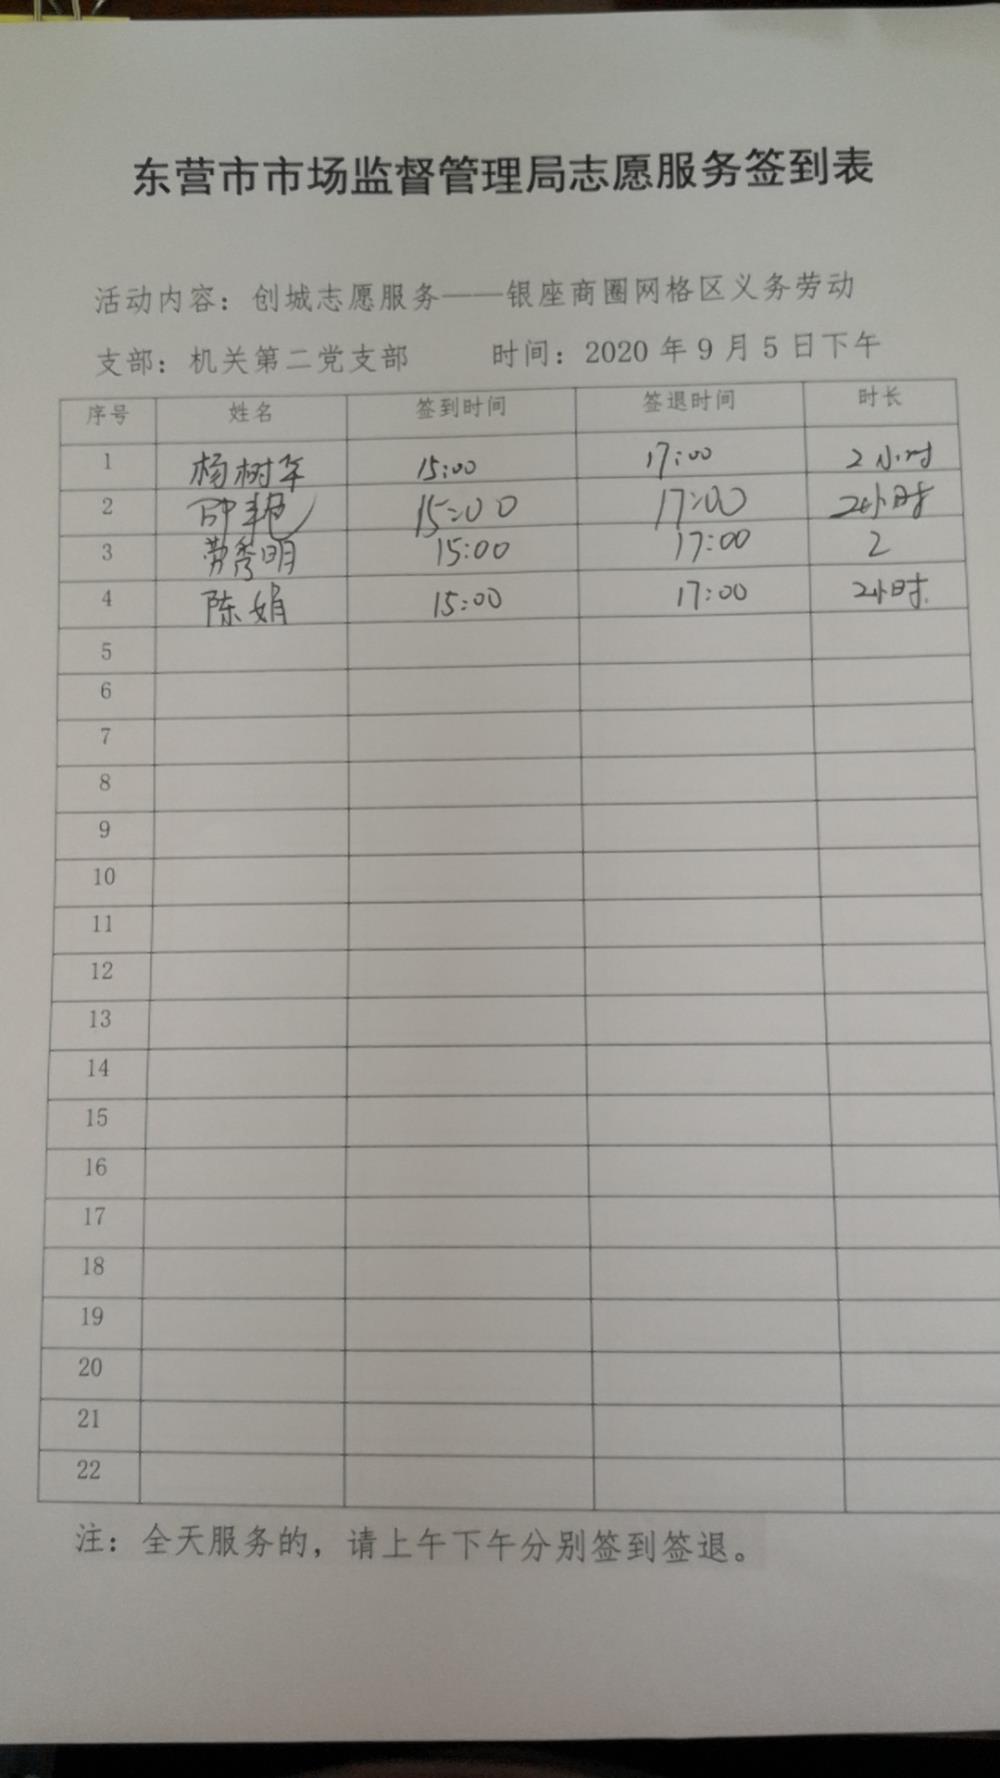 东营市市场监督管理局志愿服务签到表
活动内容：创城志愿服务——银座商圈网格区义务劳动
支部：机关第二党支部 时间：2020 年 9 月 5 日下午
序号 姓名 签到时间 签退时间 时长
1 杨树军 15:00 17:00 2小时
2 15:00 17:00 2小时
3 劳秀明 15:00 17:00 2
4 陈娟 15:00 17:00 2小时.
5
6
7
8
9
10
11
12
13
14
15
16
17
18
19
20
21
22
注：全天服务的，请上午下午分别签到签退。